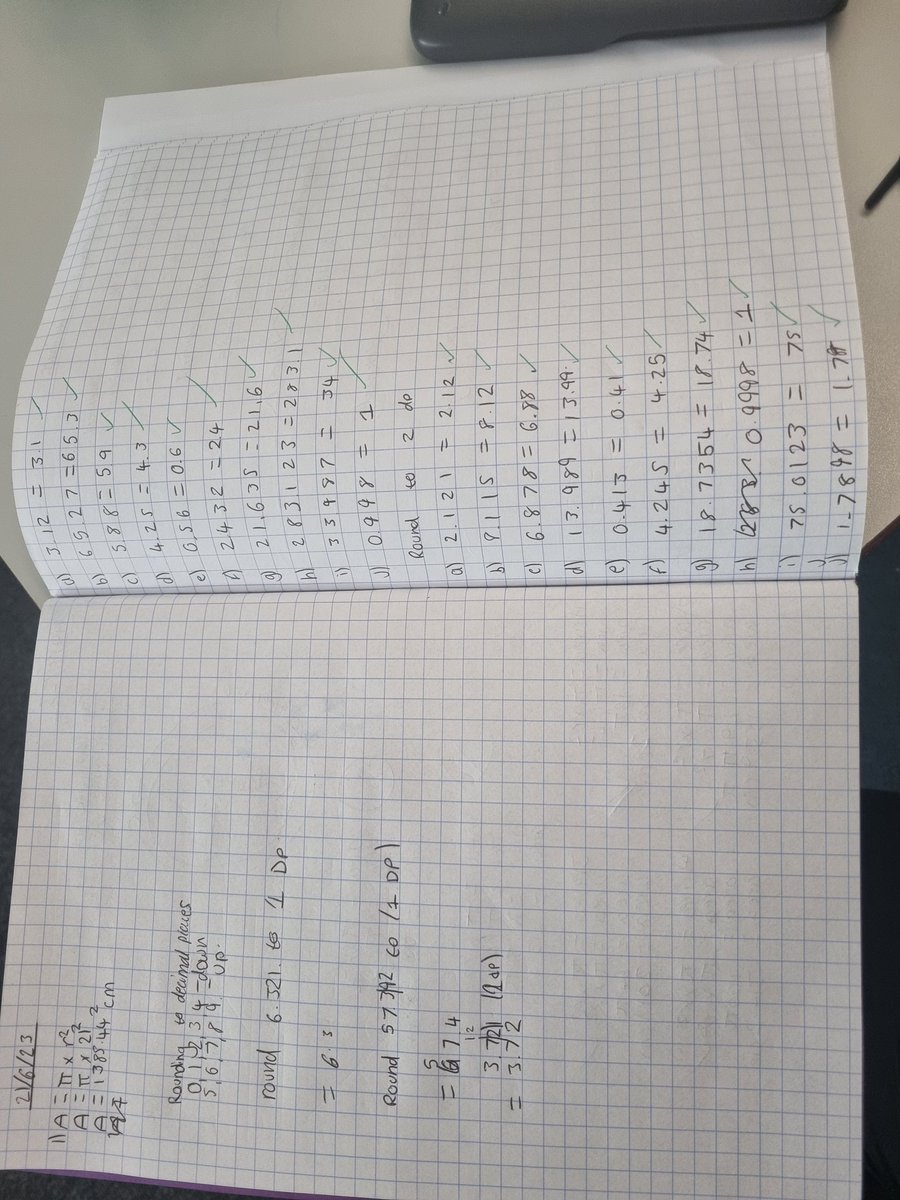 21/6/23
1) A = π x r²
A = π x 21²
A = 1385.44 cm²
Rounding to decimal places
0, 1, 2 3 4 = down
5, 6, 7, 8 9 = up.
round 6.321. to 1 DP.
= 6.3
Round 57.392 to (1 DP)
= 57.4
3.721 (2 dp)
= 3.72
a) 3.12 = 3.1 ✓
b) 65.27 = 65.3 ✓
c) 5.88 = 5.9 ✓
d) 4.25 = 4.3 ✓
e) 0.56 = 0.6 ✓
f) 24.32 = 24 ✓
g) 21.635 = 21.6 ✓
h) 283.123 = 283.1 ✓
i) 33.987 = 34 ✓
j) 0.998 = 1 ✓
Round to 2 dp
a) 2.121 = 2.12 ✓
b) 8.115 = 8.12 ✓
c) 6.878 = 6.88 ✓
d) 13.989 = 13.99 ✓
e) 0.413 = 0.41 ✓
f) 4.245 = 4.25 ✓
g) 18.7354 = 18.74 ✓
h) 0.9998 = 1 ✓
i) 75.0123 = 75 ✓
j) 1.7898 = 1.79 ✓